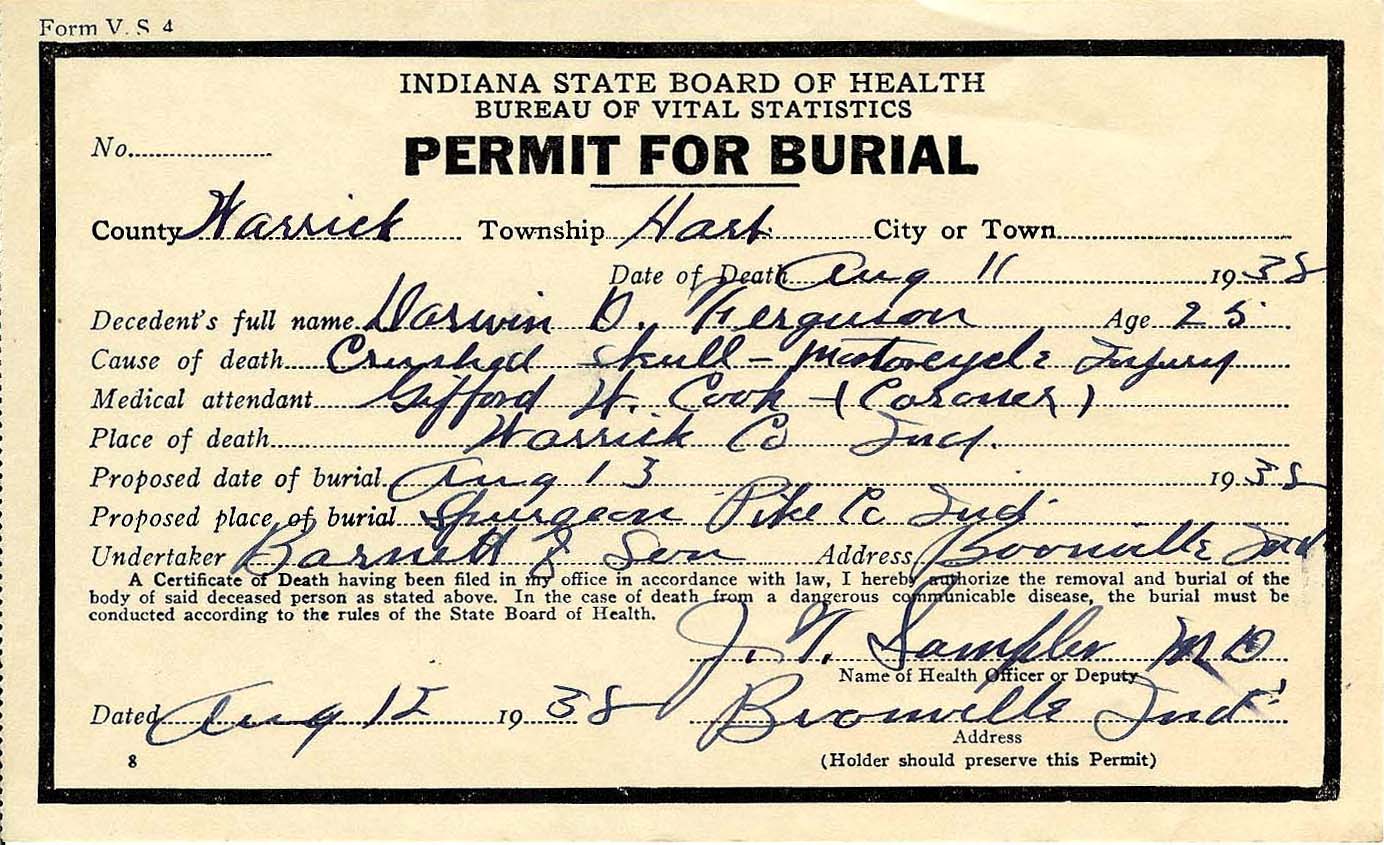 Form V. S. 4
INDIANA STATE BOARD OF HEALTH
BUREAU OF VITAL STATISTICS
No.
PERMIT FOR BURIAL
County Warrick Township Hart City or Town
Date of Death Aug 11 1938
Decedent's full name Darwin D. Ferguson Age 25
Cause of death Crushed skull - Motorcycle Injury
Medical attendant Gifford H. Cook (Coroner)
Place of death Warrick Co Ind.
Proposed date of burial Aug 13 1938
Proposed place of burial Spurgeon Pike Co Ind
Undertaker Barnett & Son Address Boonville Ind
A Certificate of Death having been filed in my office in accordance with law, I hereby authorize the removal and burial of the
body of said deceased person as stated above. In the case of death from a dangerous communicable disease, the burial must be
conducted according to the rules of the State Board of Health.
J. T. Sampler MD
Name of Health Officer or Deputy
Dated Aug 12 1938 Boonville Ind
Address
8 (Holder should preserve this Permit)